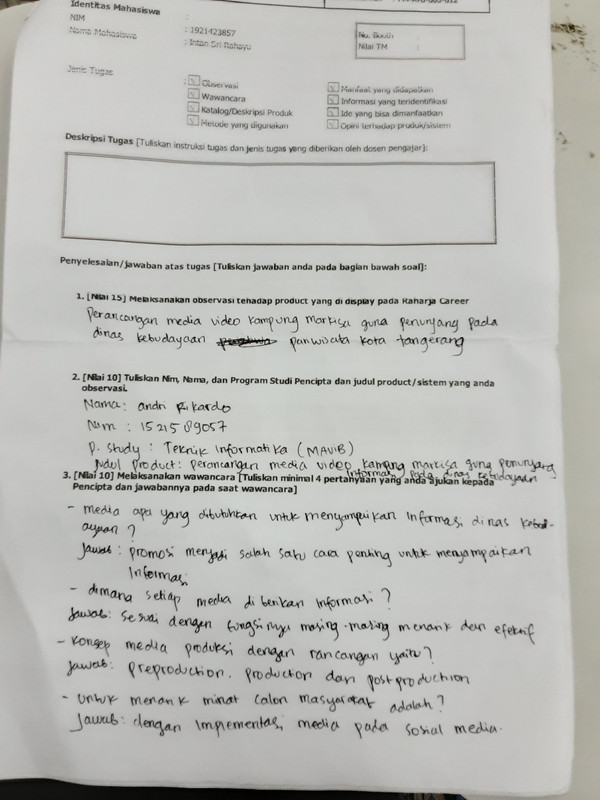 Identitas Mahasiswa
NIM : 1921423857
Nama Mahasiswa : Intan Sri Rahayu
No. Booth :
Nilai TM :
Jenis Tugas :
Observasi
Wawancara
Katalog/Deskripsi Produk
Metode yang digunakan
Manfaat yang didapatkan
Informasi yang teridentifikasi
Ide yang bisa dimanfaatkan
Opini terhadap produk/sistem
Deskripsi Tugas [Tuliskan instruksi tugas dan jenis tugas yang diberikan oleh dosen pengajar]:
Penyelesaian/jawaban atas tugas [Tuliskan jawaban anda pada bagian bawah soal]:
1. [Nilai 15] Melaksanakan observasi tehadap product yang di display pada Raharja Career
Perancangan media video kampung markisa guna penunjang pada
dinas kebudayaan pariwisata kota tangerang
2. [Nilai 10] Tuliskan Nim, Nama, dan Program Studi Pencipta dan judul product/sistem yang anda
observasi.
Nama : andri Rikardo
Nim : 1521589057
P. Study : Teknik Informatika (MAVIB)
Judul product : perancangan media video kampung markisa guna penunjang
Informasi pada dinas kebudayaan
3. [Nilai 10] Melaksanakan wawancara [Tuliskan minimal 4 pertanyaan yang anda ajukan kepada
Pencipta dan jawabannya pada saat wawancara]
- media apa yang dibutuhkan untuk menyampaikan Informasi dinas kebud-
ayaan ?
Jawab : promosi menjadi salah satu cara penting untuk menyampaikan
Informasi
- dimana setiap media di berikan informasi ?
Jawab : sesuai dengan fungsinya masing-masing menarik dan efektif
- Konsep media produksi dengan rancangan yaitu ?
Jawab : preproduction, production dan postproduction
- Untuk menarik minat calon masyarakat adalah ?
Jawab : dengan Implementasi media pada sosial media.